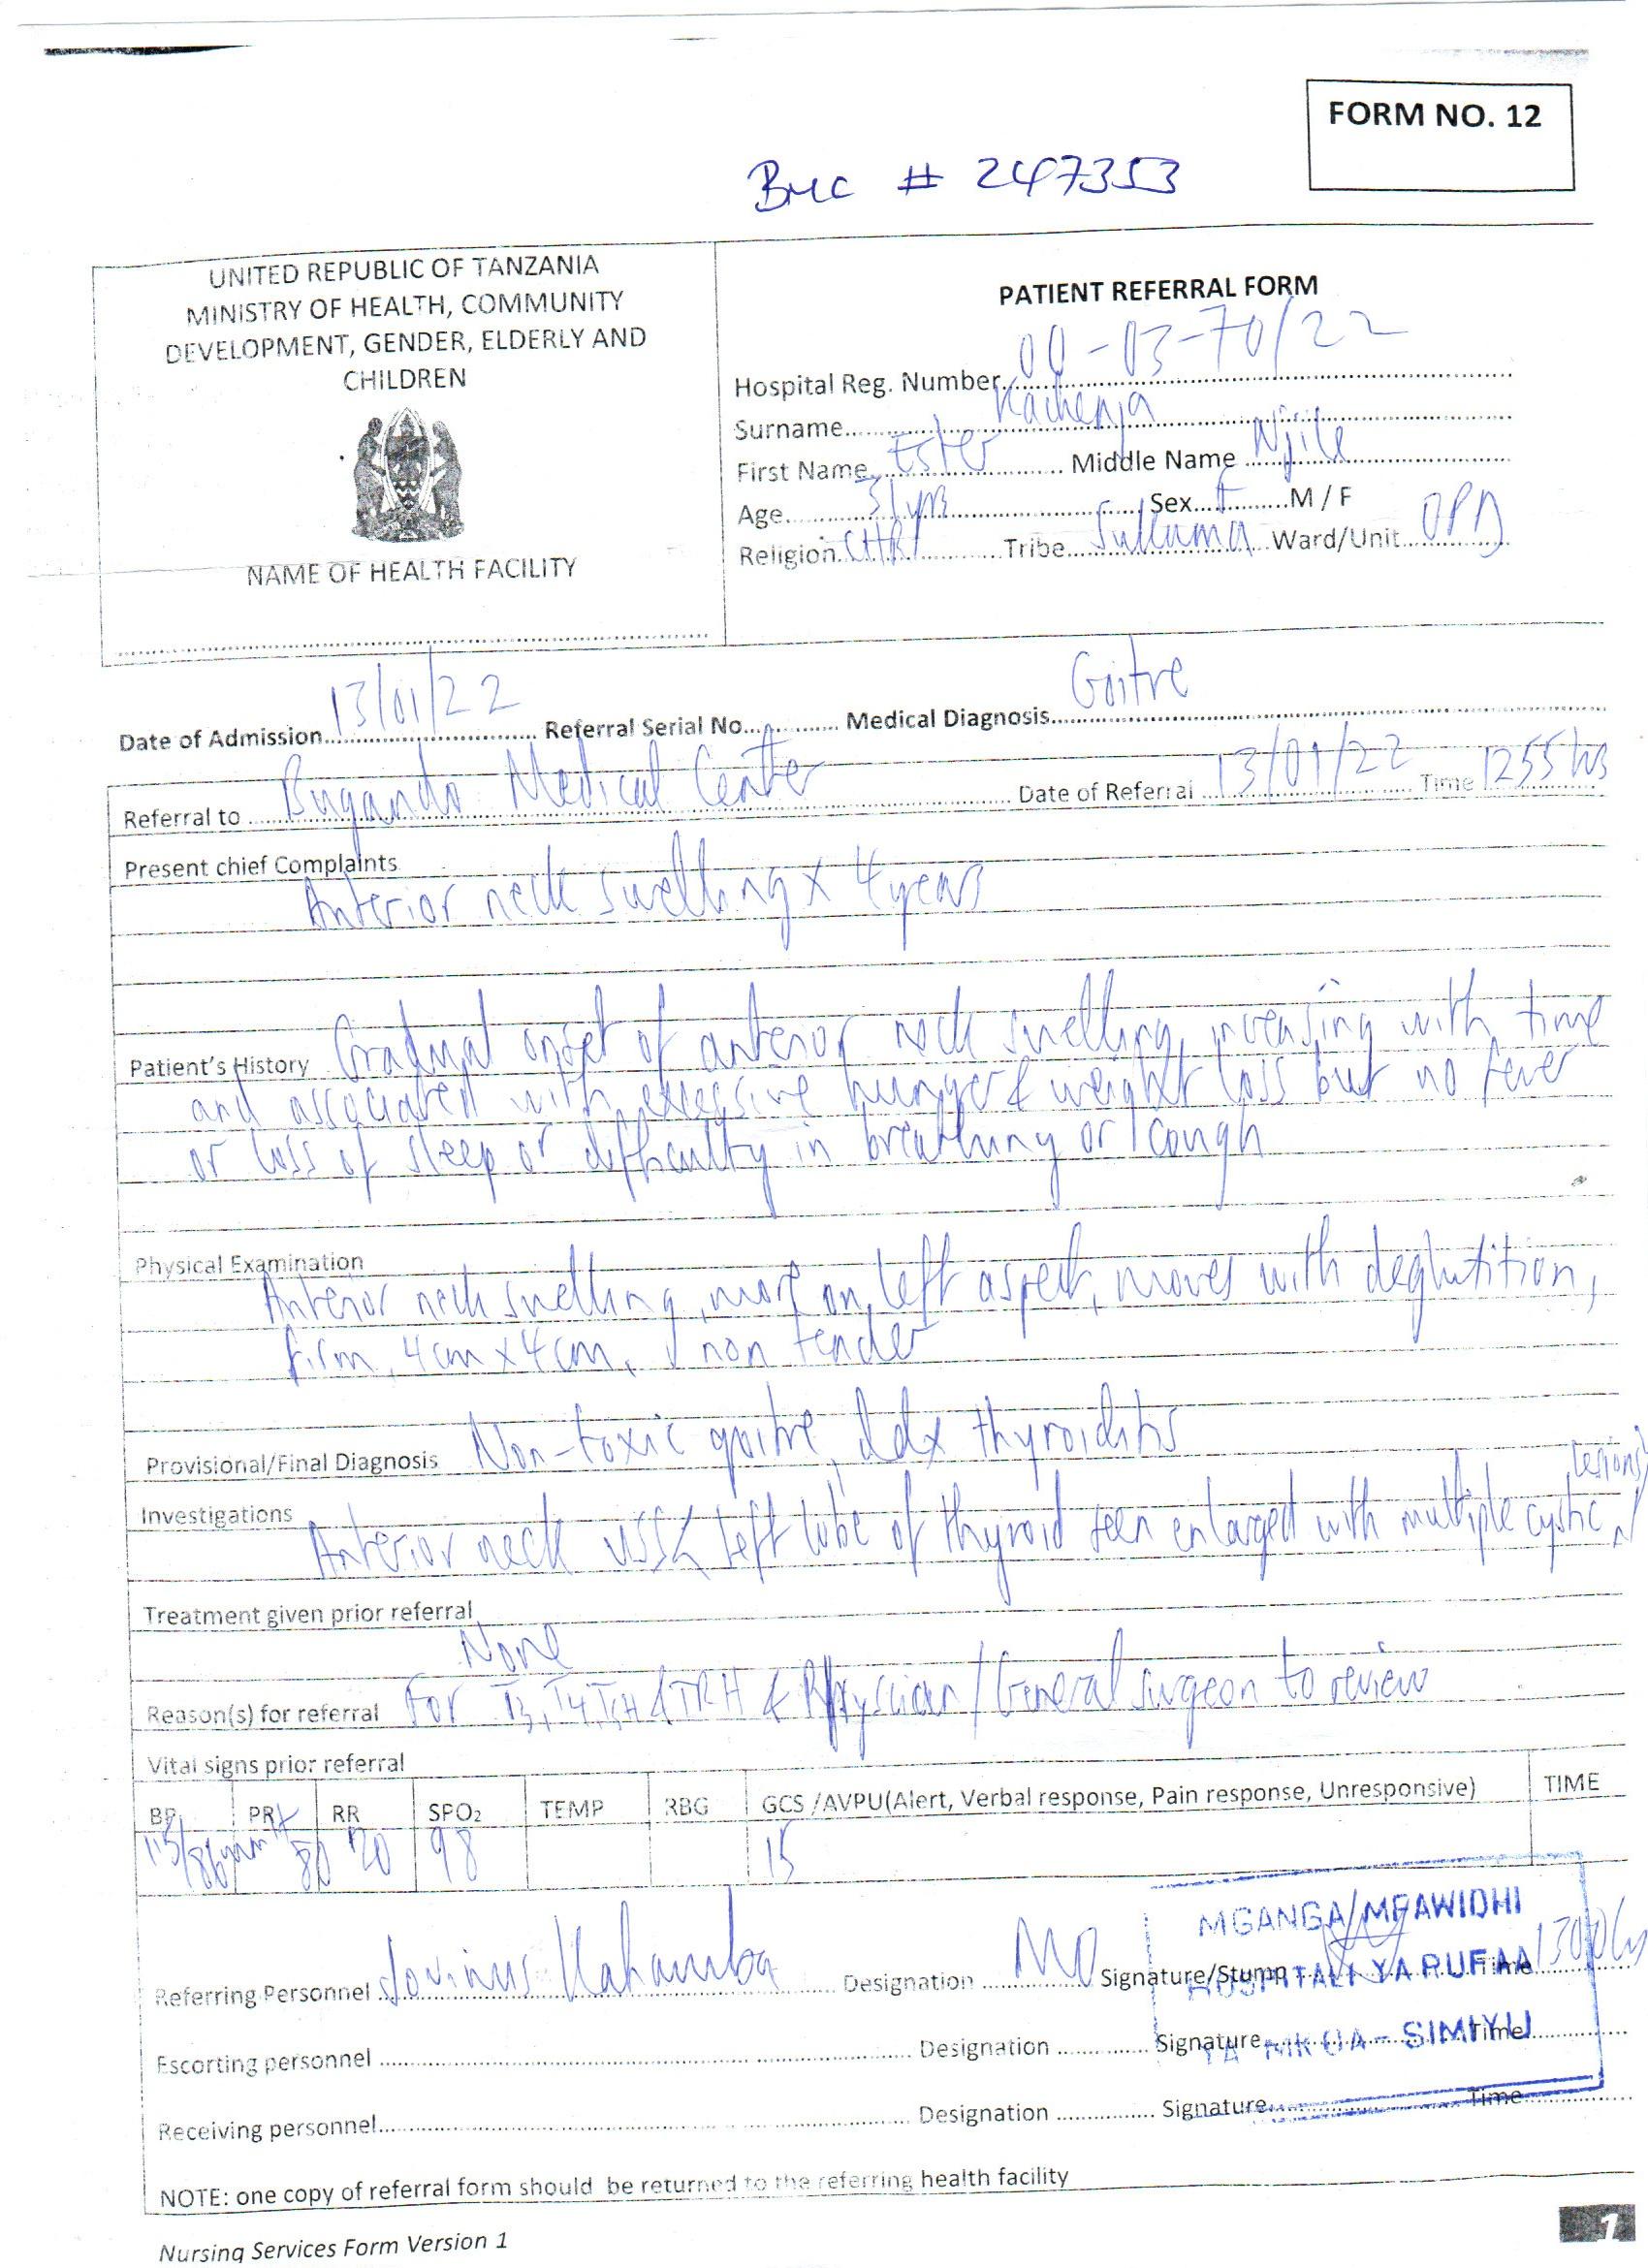 FORM NO. 12
BMC # 247353
UNITED REPUBLIC OF TANZANIA
MINISTRY OF HEALTH, COMMUNITY
DEVELOPMENT, GENDER, ELDERLY AND
CHILDREN
NAME OF HEALTH FACILITY
PATIENT REFERRAL FORM
Hospital Reg. Number 00-03-70/22
Surname Kachenja
First Name Ester Middle Name Njile
Age 31yrs Sex F M / F
Religion CHR Tribe Sukuma Ward/Unit OPD
Date of Admission 13/01/22 Referral Serial No. Medical Diagnosis Goitre
Referral to Bugando Medical Center Date of Referral 13/01/22 Time 1255hrs
Present chief Complaints
Anterior neck swelling x 4years
Patient's History Gradual onset of anterior neck swelling, increasing with time
and associated with excessive hunger & weight loss but no fever
or loss of sleep or difficulty in breathing or cough
Physical Examination
Anterior neck swelling, more on left aspect, moves with deglutition,
firm, 4cm x 4cm, non tender
Provisional/Final Diagnosis Non-toxic goitre, ddx thyroiditis
Investigations
Anterior neck USS left lobe of thyroid seen enlarged with multiple cystic lesions
Treatment given prior referral
None
Reason(s) for referral For T3, T4, TSH & TRH & Physician/General surgeon to review
Vital signs prior referral
BP PR RR SPO2 TEMP RBG GCS /AVPU(Alert, Verbal response, Pain response, Unresponsive) TIME
115/86mmHg 80 20 98 15
Referring Personnel Jovinus Kahamba Designation MD Signature/Stump Time 1300hrs
Escorting personnel Designation Signature Time
Receiving personnel Designation Signature Time
MGANGA MFAWIDHI
HOSPITALI YA RUFAA
YA MKOA - SIMIYU
NOTE: one copy of referral form should be returned to the referring health facility
Nursing Services Form Version 1
1